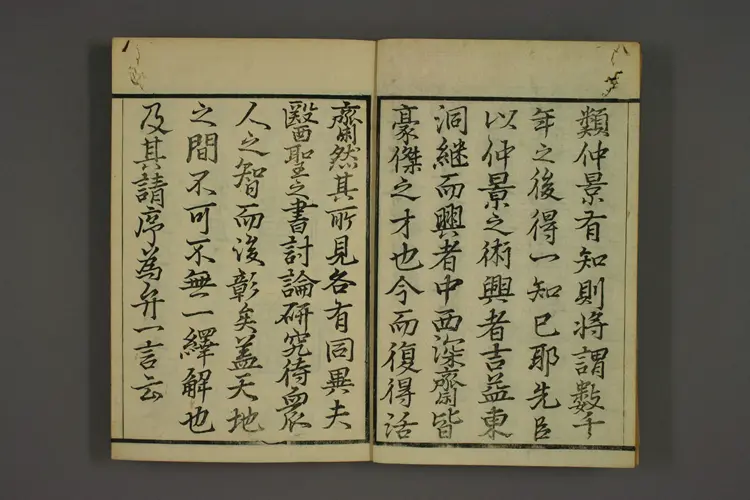 類仲景有知則將謂數千
年之後得一知已耶先臣
以仲景之術興者吉益東
洞継而興者中西深齋皆
豪傑之才也今而復得活
齋然其所見各有同異夫
醫聖之書討論研究待衆
人之智而後彰矣蓋天地
之間不可不無一繹解也
及其請序為弁一言云